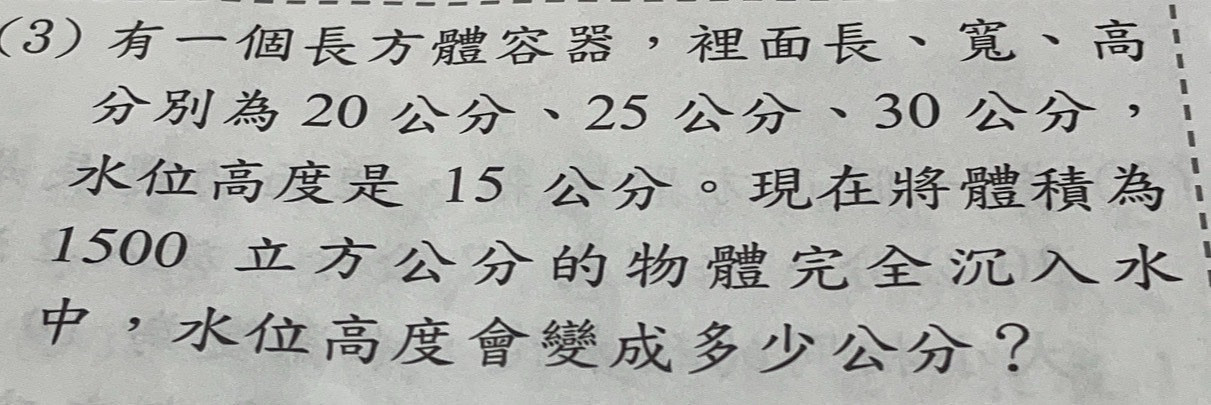 (3) 有一個長方體容器，裡面長、寬、高
分別為 20 公分、25 公分、30 公分，
水位高度是 15 公分。現在將體積為
1500 立方公分的物體完全沉入水
中，水位高度會變成多少公分？